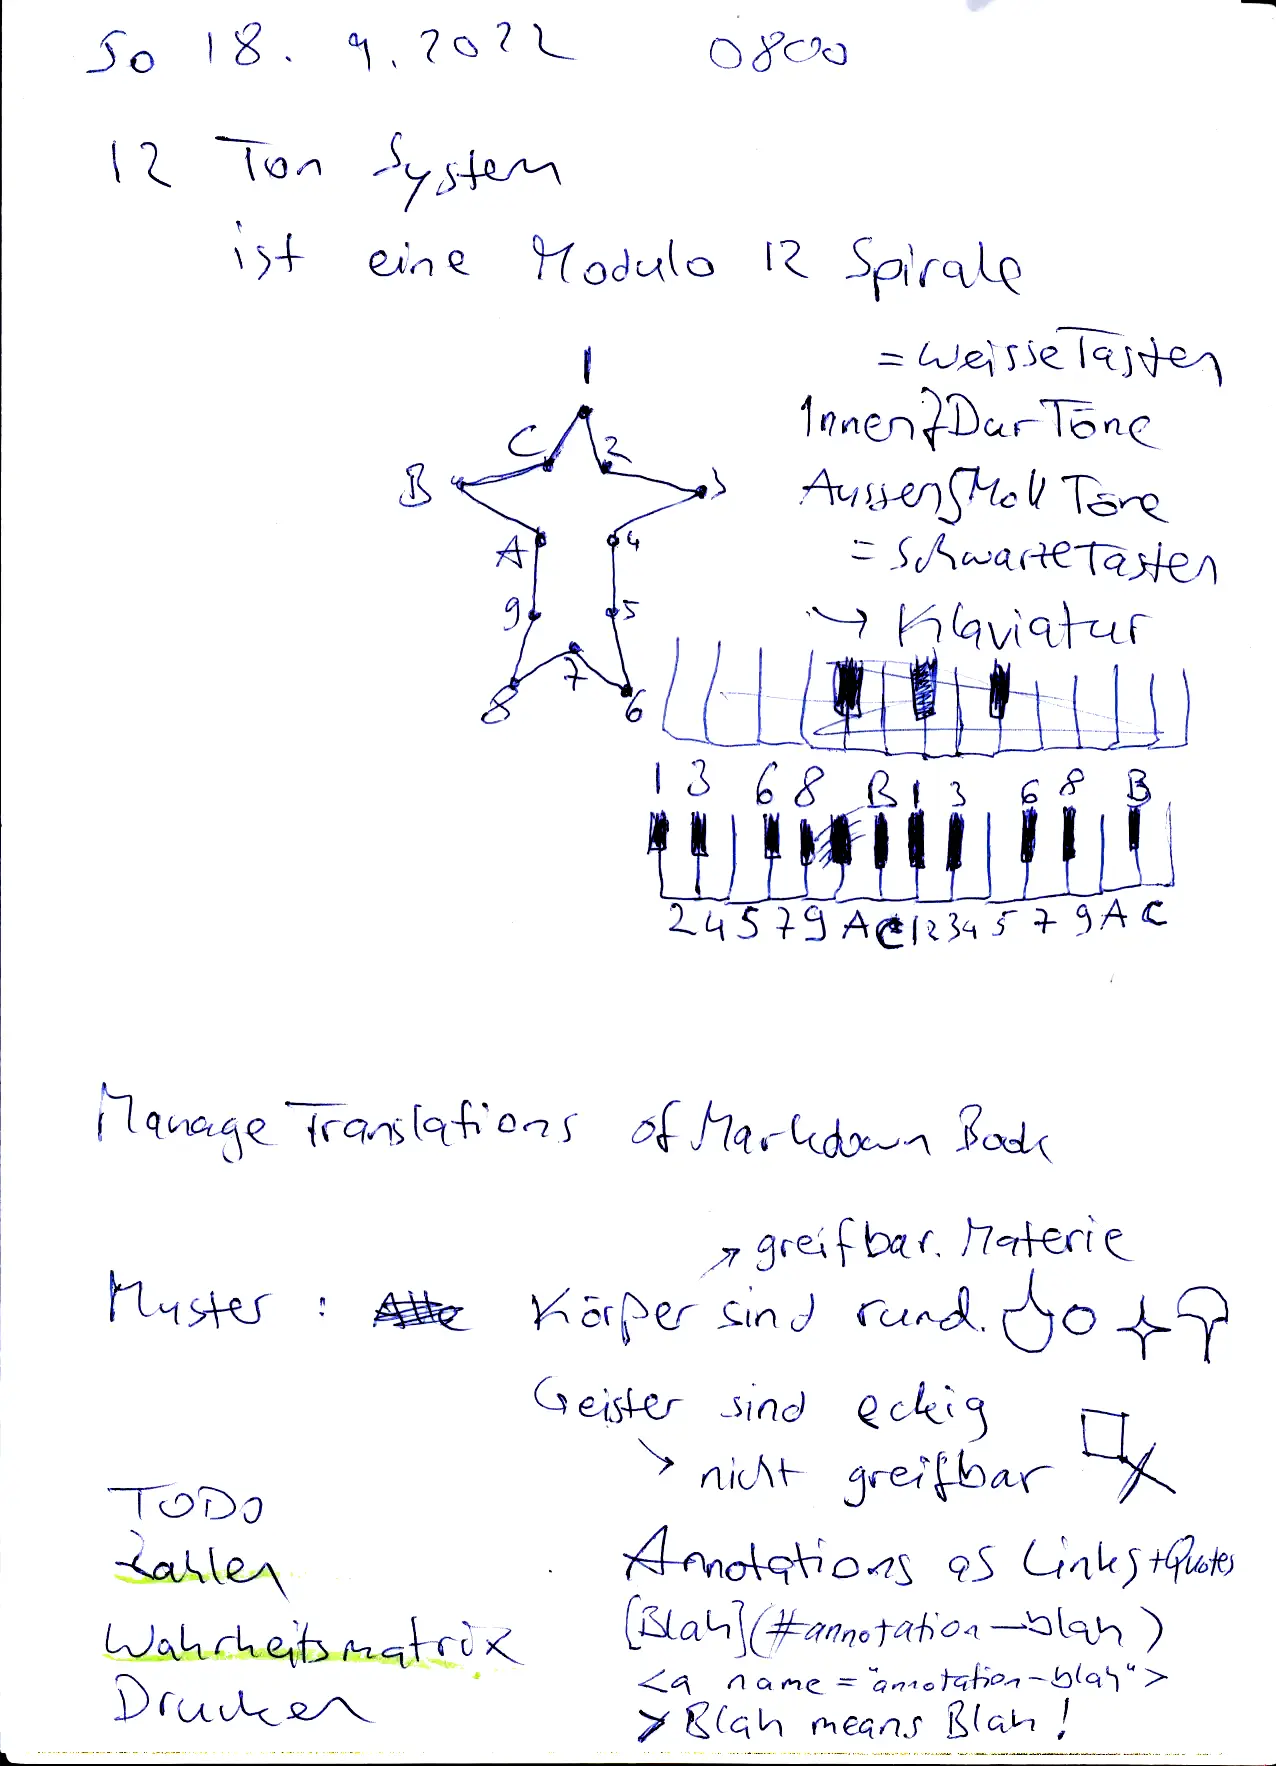 So 18. 9. 2022 0800
12 Ton System
ist eine Modulo 12 Spirale
= Weisse Tasten
Innen } Dur Töne
Aussen } Moll Töne
= Schwarze Tasten
→ Klaviatur
1
C 2
B 3
A 4
9 5
7
8 6
1 3 6 8 B 1 3 6 8 B
2 4 5 7 9 A C 1 2 3 4 5 7 9 A C
Manage Translations of Markdown Book
↗ greifbar. Materie
Muster : Körper sind rund.
Geister sind eckig
↘ nicht greifbar
TODO
Zahlen
Wahrheitsmatrix
Drucken
Annotations as Links + Quotes
[Blah](#annotation-blah)
<a name="annotation-blah">
> Blah means Blah!